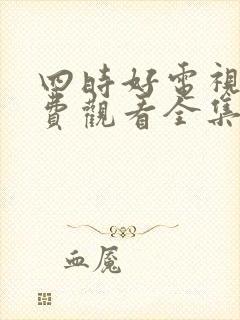 四時好電視
費觀看全集
血魘